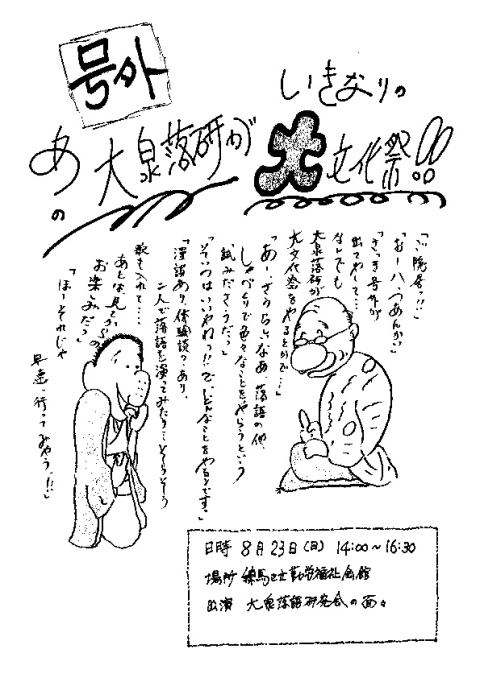 号外
いきなりの
あの大泉落研が大文化祭!!
「ご隠居っ!!」
「おー八つあんか」
「さっき号外が
出てやして…
なんでも
大泉落研が
大文化祭をやるとかで…」
「あー、そうらしいなあ、落語の他、
しゃべくりで色々なことをやろうという
試みだそうだ」
「そいつはいいやね!!で、どんなことをやるんです。」
「漫談あり、体験談?あり、
二人で落語を演ってみたり…そうそう
歌も入れて…
あとは、見てからの
お楽しみだ。」
「ほーそれじゃ
早速、行ってみやう!!」
日時 8月23日(日) 14:00~16:30
場所 練馬区立勤労福祉会館
出演 大泉落語研究会の面々